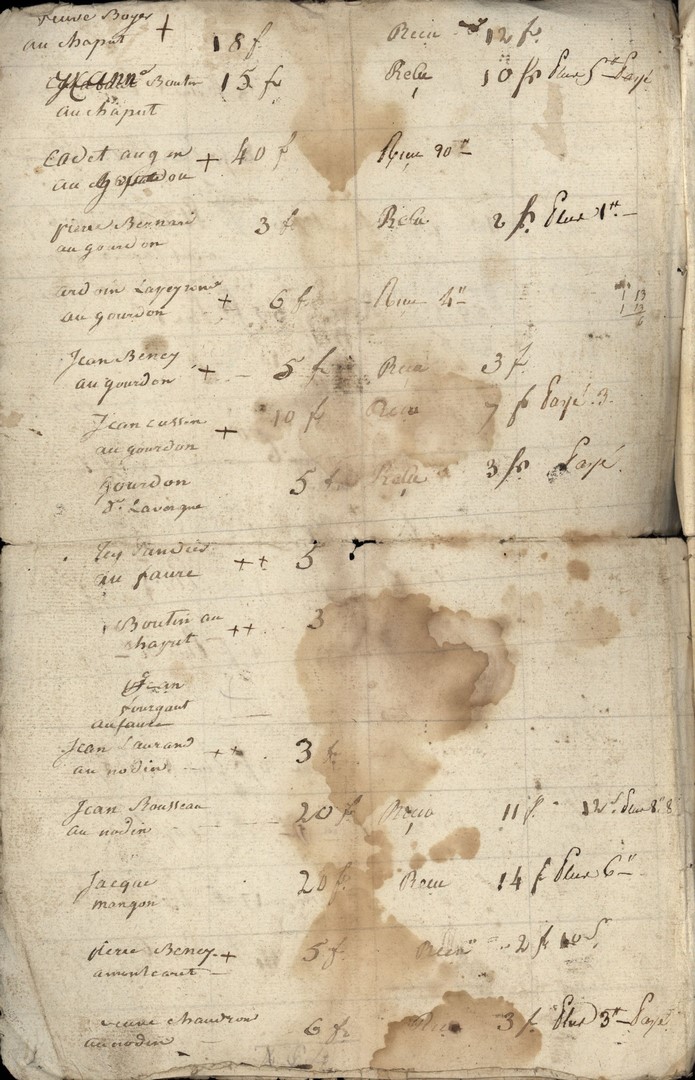 veuve Boyer + 18 f Recu 12 f.
au chaput
Boutin 15 f Recu 10 fr Plus 5 Payé
au chaput
Cadet augen + 40 f Recu 90 "
au gourdou
pierre Bernard 3 f Recu 2 fr. Plus 1 " —
au gourdon
ardoin Lapeyronne + 6 f Recu 4 "
au gourdon
1 13
1 13
6
Jean Bency + 5 f Recu 3 f
au gourdon
Jean cassin + 10 f Recu 7 f Payé . 3 .
au gourdon
gourdon 5 f Recu 3 fr Payé .
Lavergne
++ 5
au faure
Boutin au ++ 3
chaput
Jean
fourgaut
au faure
Jean Laurand ++ 3 f
au nodin
Jean Rousseau 20 f Recu 11 f
au nodin
Jacque 20 f Recu 14 f Plus 6 "
mangon
pierre Bency + 5 f Recu 2 f 10 s
amontcaret
veuve chaudron 6 f Recu 3 f Plus 3 " Payé
au nodin